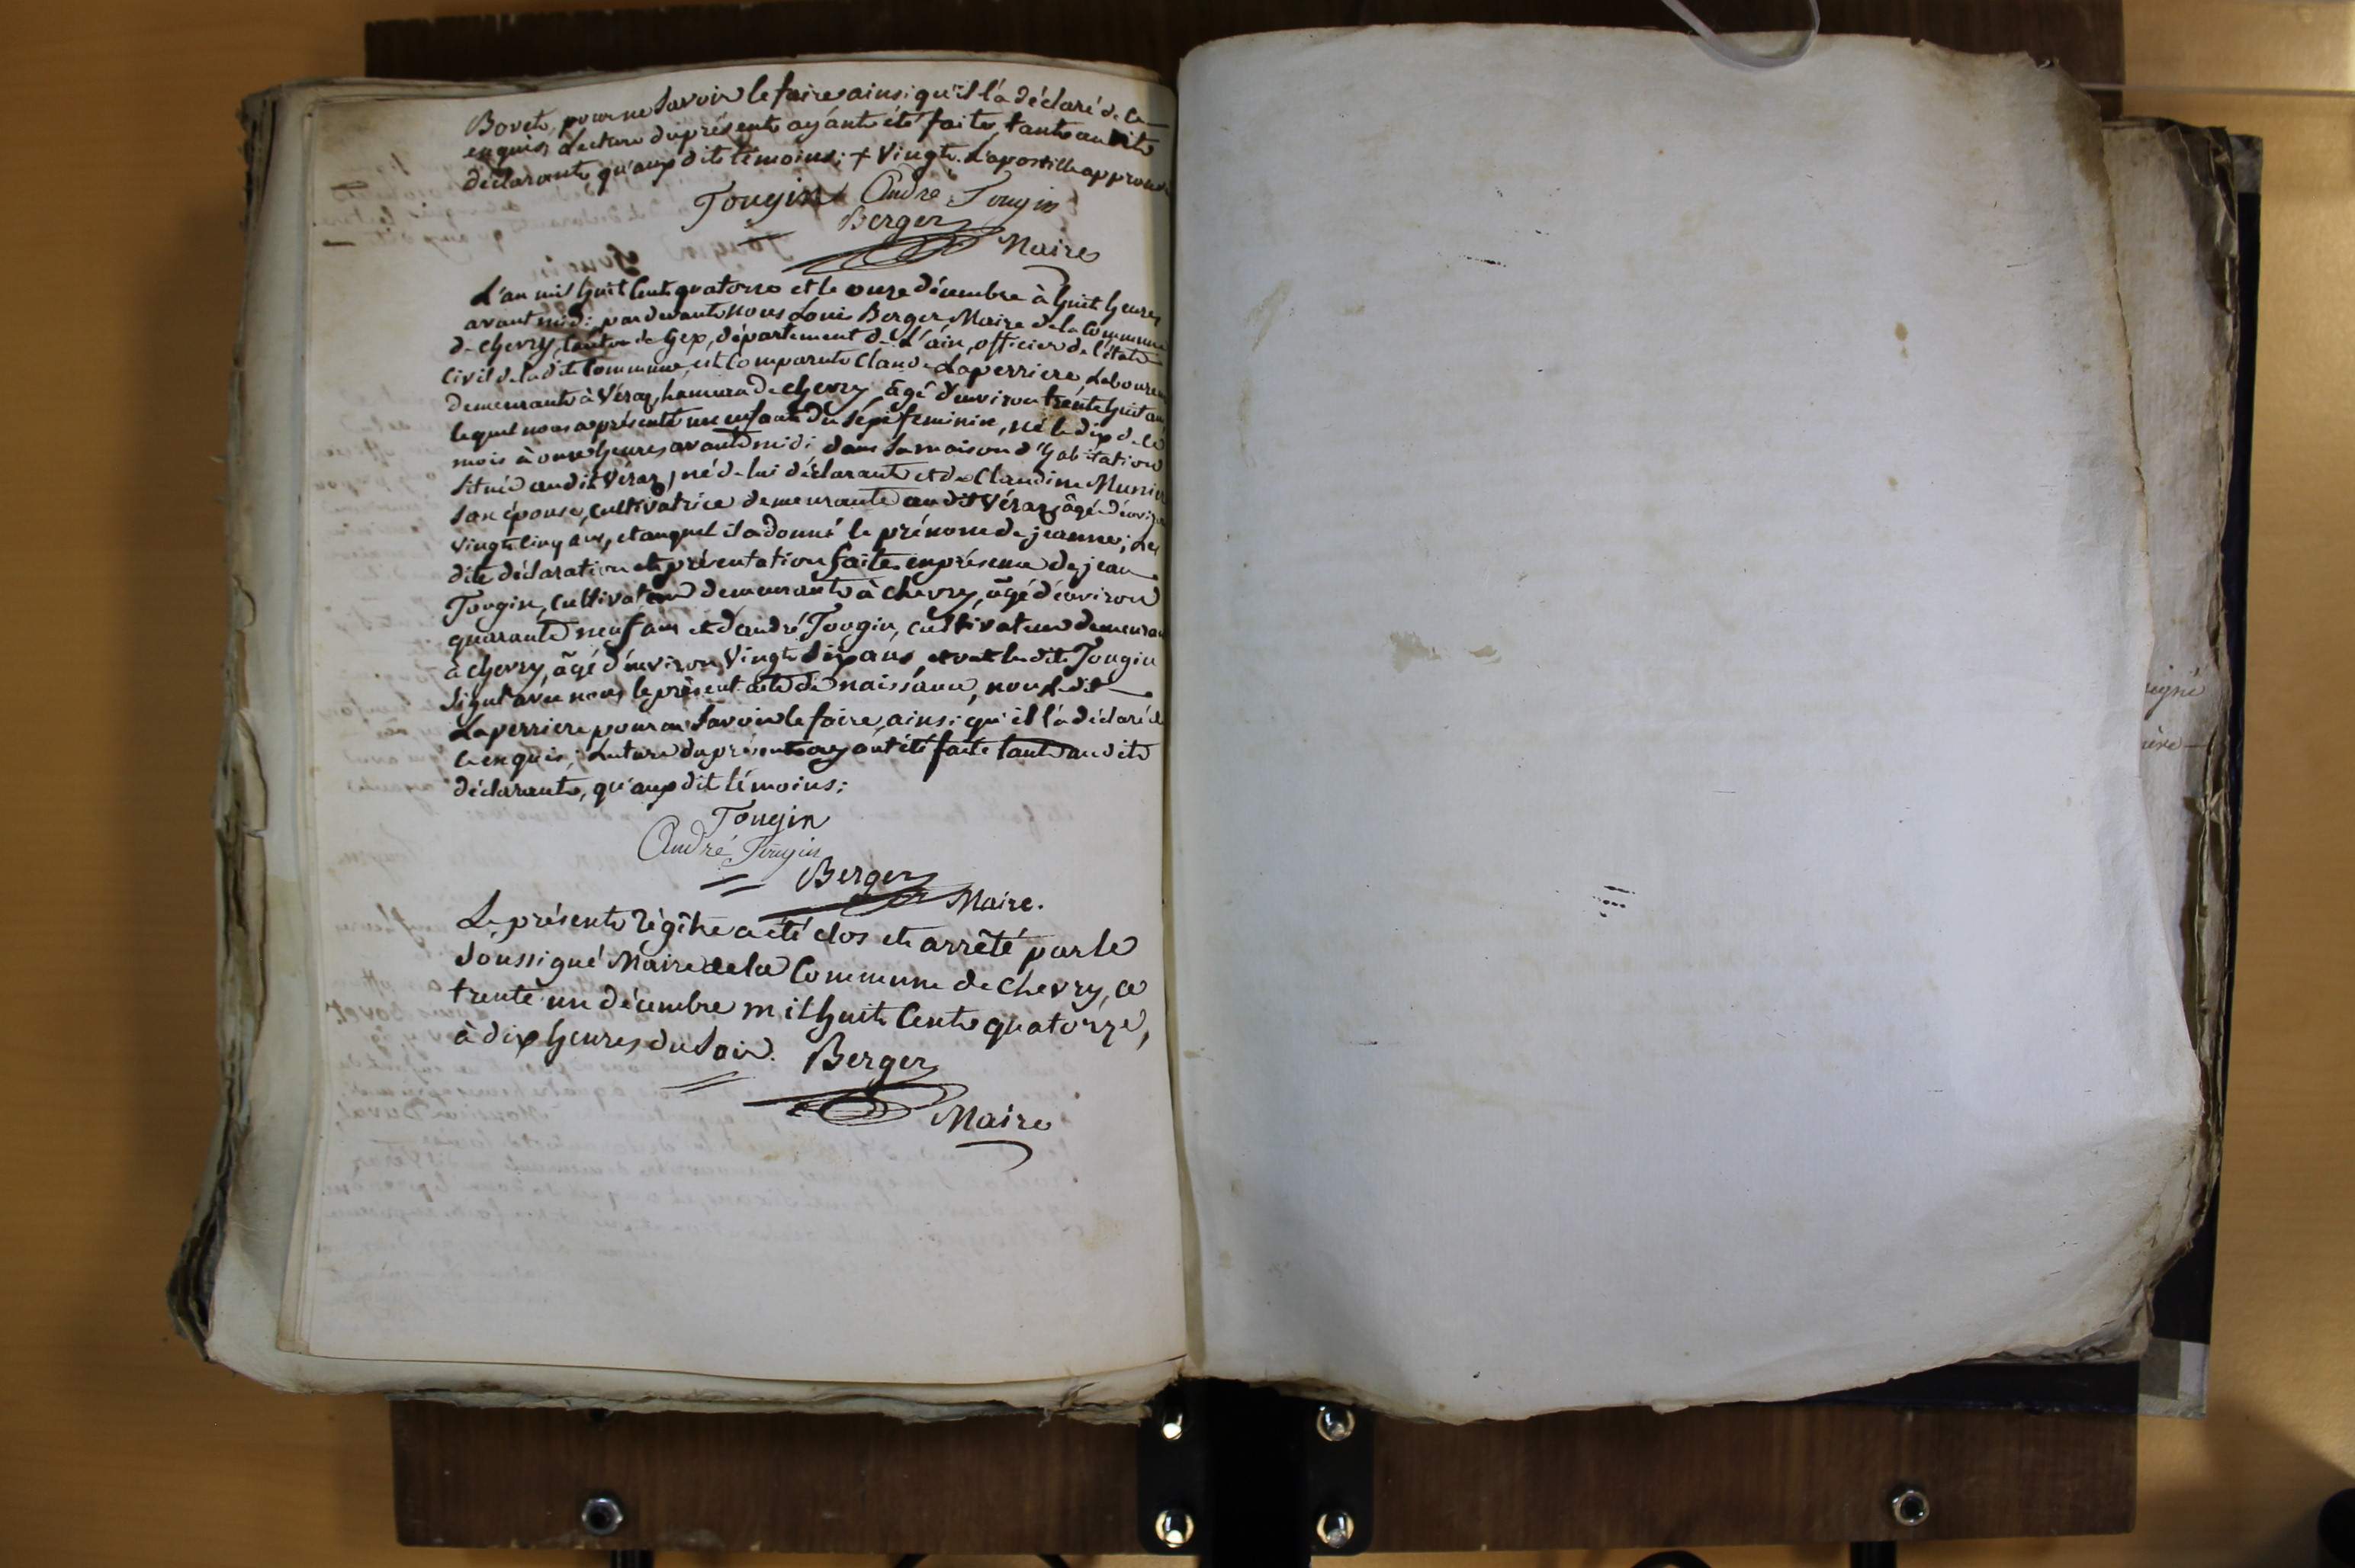 Bovet, pour ne savoir le faire ainsi qu'il l'a déclaré de ce
enquis; Lecture du présent ayánt été faite, tant au dit
déclarant, qu'aux dits témoins; + Vingt. L'apostille approuvé
Tougin André Tougin
Berger
Maire
L'an mil huit Cent quatorze et le onze décembre à huit heures
avant midi; par devant Nous Louis Berger Maire de la Commune
de Chevry, Canton de Gex, département de L'ain, officier de l'état
Civil de la dite Commune, est Comparut Claude Laperriere Laboureur
demeurant à Véraz, hameau de chevry, âgé d'environ trente huit ans
lequel nous a présenté un enfant du sexe feminin, né le dix de ce
mois à onze heures avant midi dans sa maison d'habitation
située au dit Véraz, né de lui déclarant et de Claudine Munier
son épouse, Cultivatrice demeurante au dit Véraz, âgé d'environ
vingt cinq ans, et auquel il a donné le prénom de jeanne; Les
dite déclaration et présentation faites en présence de jean
Tougin, Cultivateur demeurant à chevry, âgé d'environ
quarante neuf ans et d'andré Tougin, Cultivateur demeurant
à chevry, âgé d'environ Vingt Six ans, et ont les dits Tougin
Signé avec nous le présent acte de naissance, non Le dit
Laperriere pour ne Savoir le faire, ainsi qu'il l'a déclaré de
ce enquis; Lecture du présent ayant été faite tant au dit
déclarant, qu'aux dit témoins;
Tougin
André Tougin
Berger
Maire.
Le présent régître a été clos et arrêté par le
Soussigné Maire de la Commune de Chevry, ce
trente un décembre mil huit Cent quatorze,
à dix heures du Soir. Berger
Maire